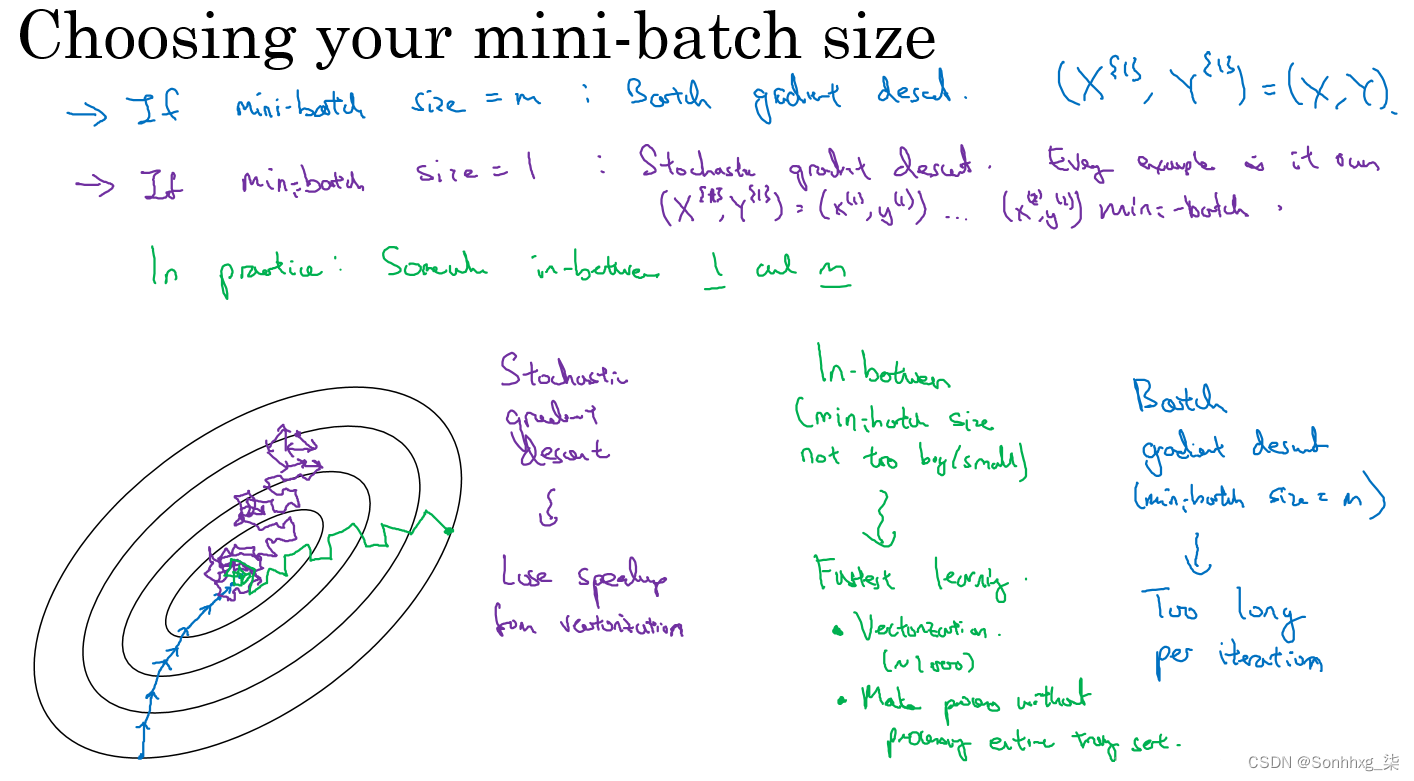 Choosing your mini-batch size
→ If mini-batch size = m : Batch gradient descent. (X^{1}, Y^{1}) = (X, Y).
→ If mini-batch size = 1 : Stochastic gradient descent. Every example is it own
(X^{1}, Y^{1}) = (x^(1), y^(1)) ... (x^(2), y^(2)) mini-batch.
In practice: Somewhere in-between 1 and m
Stochastic
gradient
descent
Lose speedup
from vectorization
In-between
(mini-batch size
not too big/small)
Fastest learning.
• Vectorization.
(~1000)
• Make progress without
processing entire training set.
Batch
gradient descent
(mini-batch size = m)
Too long
per iteration
CSDN @Sonhhxg_柒